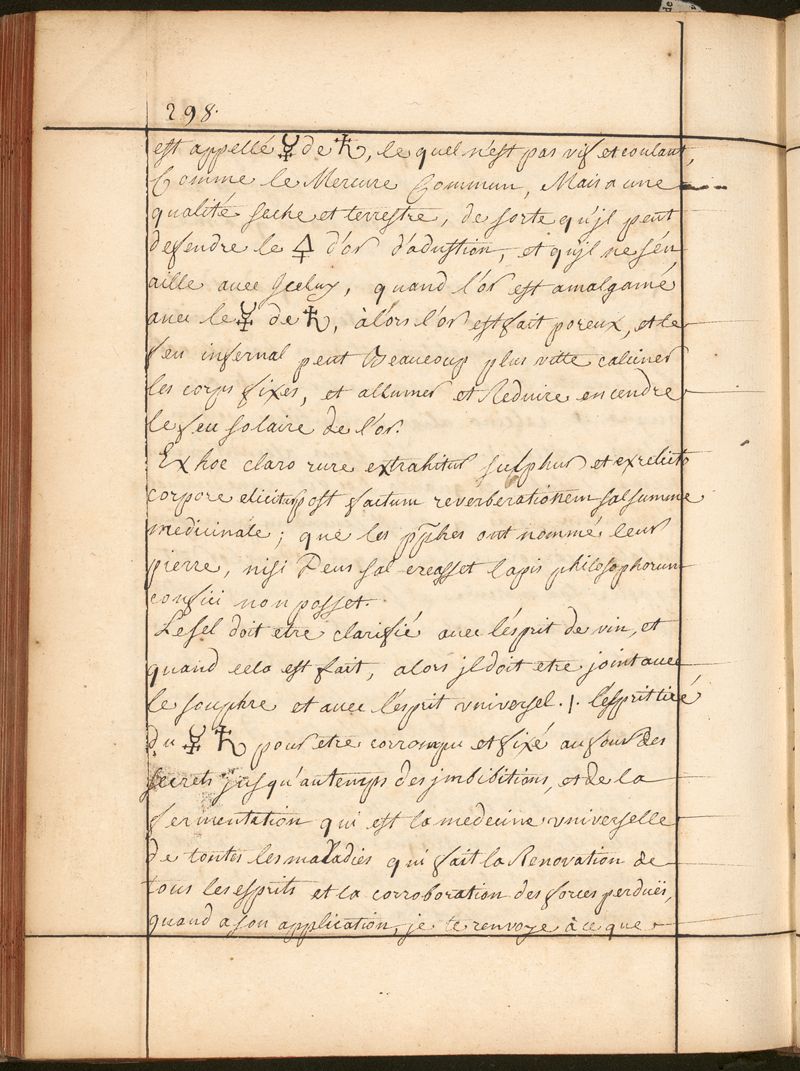 298.
est appellé ☿ de ♄, le quel n'est pas vif et coulant,
Comme le Mercure Commun, Mais a une
qualité seche et terrestre, de sorte qu'jl peut
defendre le 🜍 d'or d'adustion, et qu'jl ne s'en
aille avec Jceluy, quand l'or est amalgamé
avec le ☿ de ♄, àlors l'or est fait poreux, et le
feu infernal peut Beaucoup plus vitte calciner
les corps fixes, et allumer et Reduire en cendre
le feu solaire de l'or.
Ex hoc claro rure extrahitur sulphur et ex relicto
corpore elicitur post factum reverberationem sal summe
medicinale; que les pp̃hes ont nommé leur
pierre, nisi Deus sal creasset lapis philosophorum
confici non posset.
Le sel doit etre clarifié avec l'esprit de vin, et
quand cela est fait, alors jl doit etre joint avec
le souphre et avec l'esprit vniversel ./. l'esprit tiré
du ☿ ♄ pour etre corrompu et fixé au four des
secrets jusqu'au temps des jmbibitions, et de la
fermentation qui est la medecine vniverselle
de toutes les maladies qui fait la Renovation de
tous les esprits et la corroboration des forces perduës,
quand a son application, je te renvoye à ce que